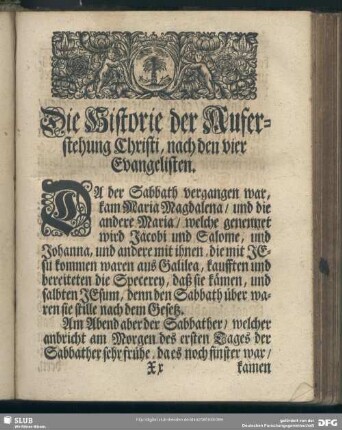 Die Historie der Aufer-
stehung Christi, nach den vier
Evangelisten.
DA der Sabbath vergangen war,
kam Maria Magdalena / und die
andere Maria / welche genennet
wird Jacobi und Salome, und
Johanna, und andere mit ihnen, die mit JE-
su kommen waren aus Galilea, kaufften und
bereiteten die Specerey, daß sie kämen, und
salbten JEsum, denn den Sabbath über wa-
ren sie stille nach dem Gesetz.
Am Abend aber der Sabbather / welcher
anbricht am Morgen des ersten Tages der
Sabbather sehr frühe, da es noch finster war /
Xx kamen
SLUB
Wir führen Wissen.
gefördert von der
Deutschen Forschungsgemeinschaft
DFG